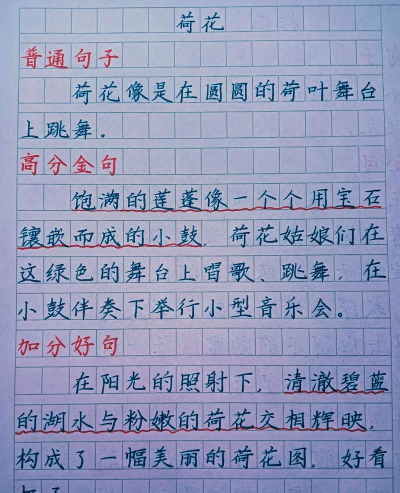 荷花
普通句子
荷花像是在圆圆的荷叶舞台
上跳舞。
高分金句
饱满的莲蓬像一个个用宝石
镶嵌而成的小鼓,荷花姑娘们在
这绿色的舞台上唱歌、跳舞,在
小鼓伴奏下举行小型音乐会。
加分好句
在阳光的照射下,清澈碧蓝
的湖水与粉嫩的荷花交相辉映,
构成了一幅美丽的荷花图,好看